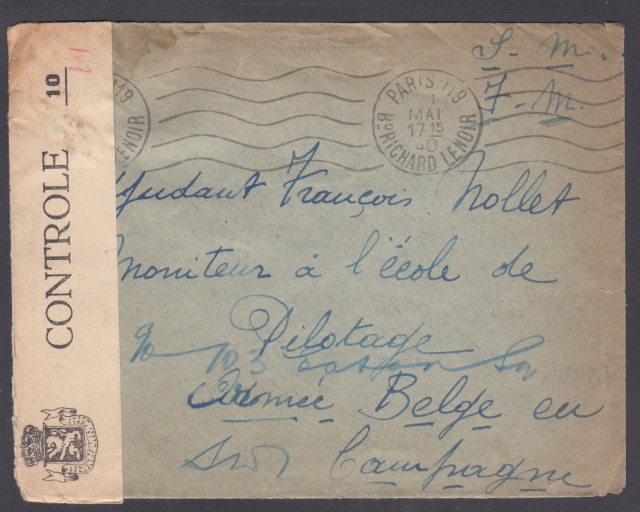 S. M.
F. M.
PARIS 119
1
MAI
17 15
40
Bd RICHARD LENOIR
119
LENOIR
10
CONTROLE
judant François Nollet
moniteur à l'école de
Pilotage
Armée Belge en
Campagne